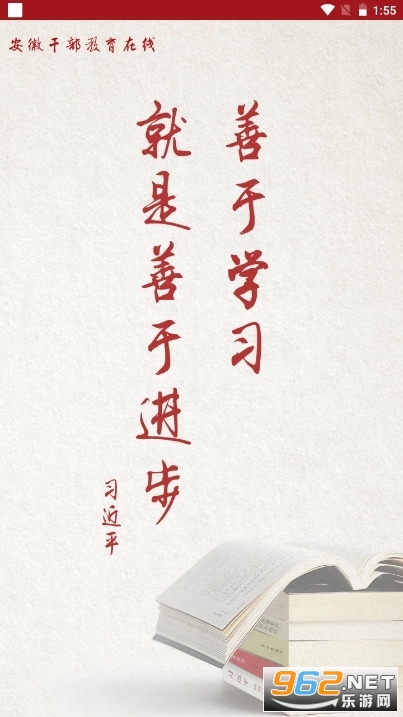 1:55
安徽干部教育在线
善于学习
就是善于进步
习近平
962.NET
乐游网